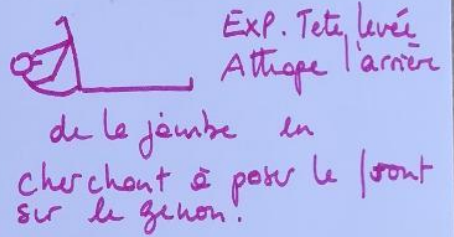 EXP. Tete levée
Attrape l'arrière
de la jambe en
cherchant à poser le front
sur le genou.